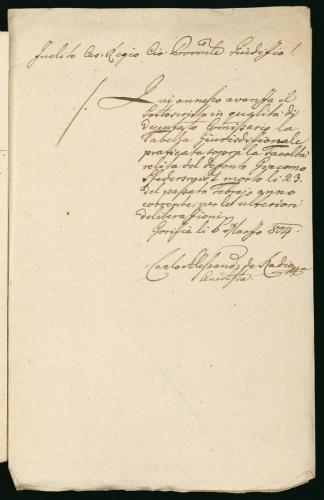 Inclito Ces: Regio Cio: Provonle Giudizio!
Qui annesso avanza il
sottoscritto in qualità di
deputato Comissario la
Tabella Giurisdizionale
praticata sopra la facoltà
relita del defonto Giacomo
morto li 23.
del passato Febrajo anno
corrente per le ulteriori
deliberazioni
Gorizia li 6 Marzo 804
Carlo Alessandro de